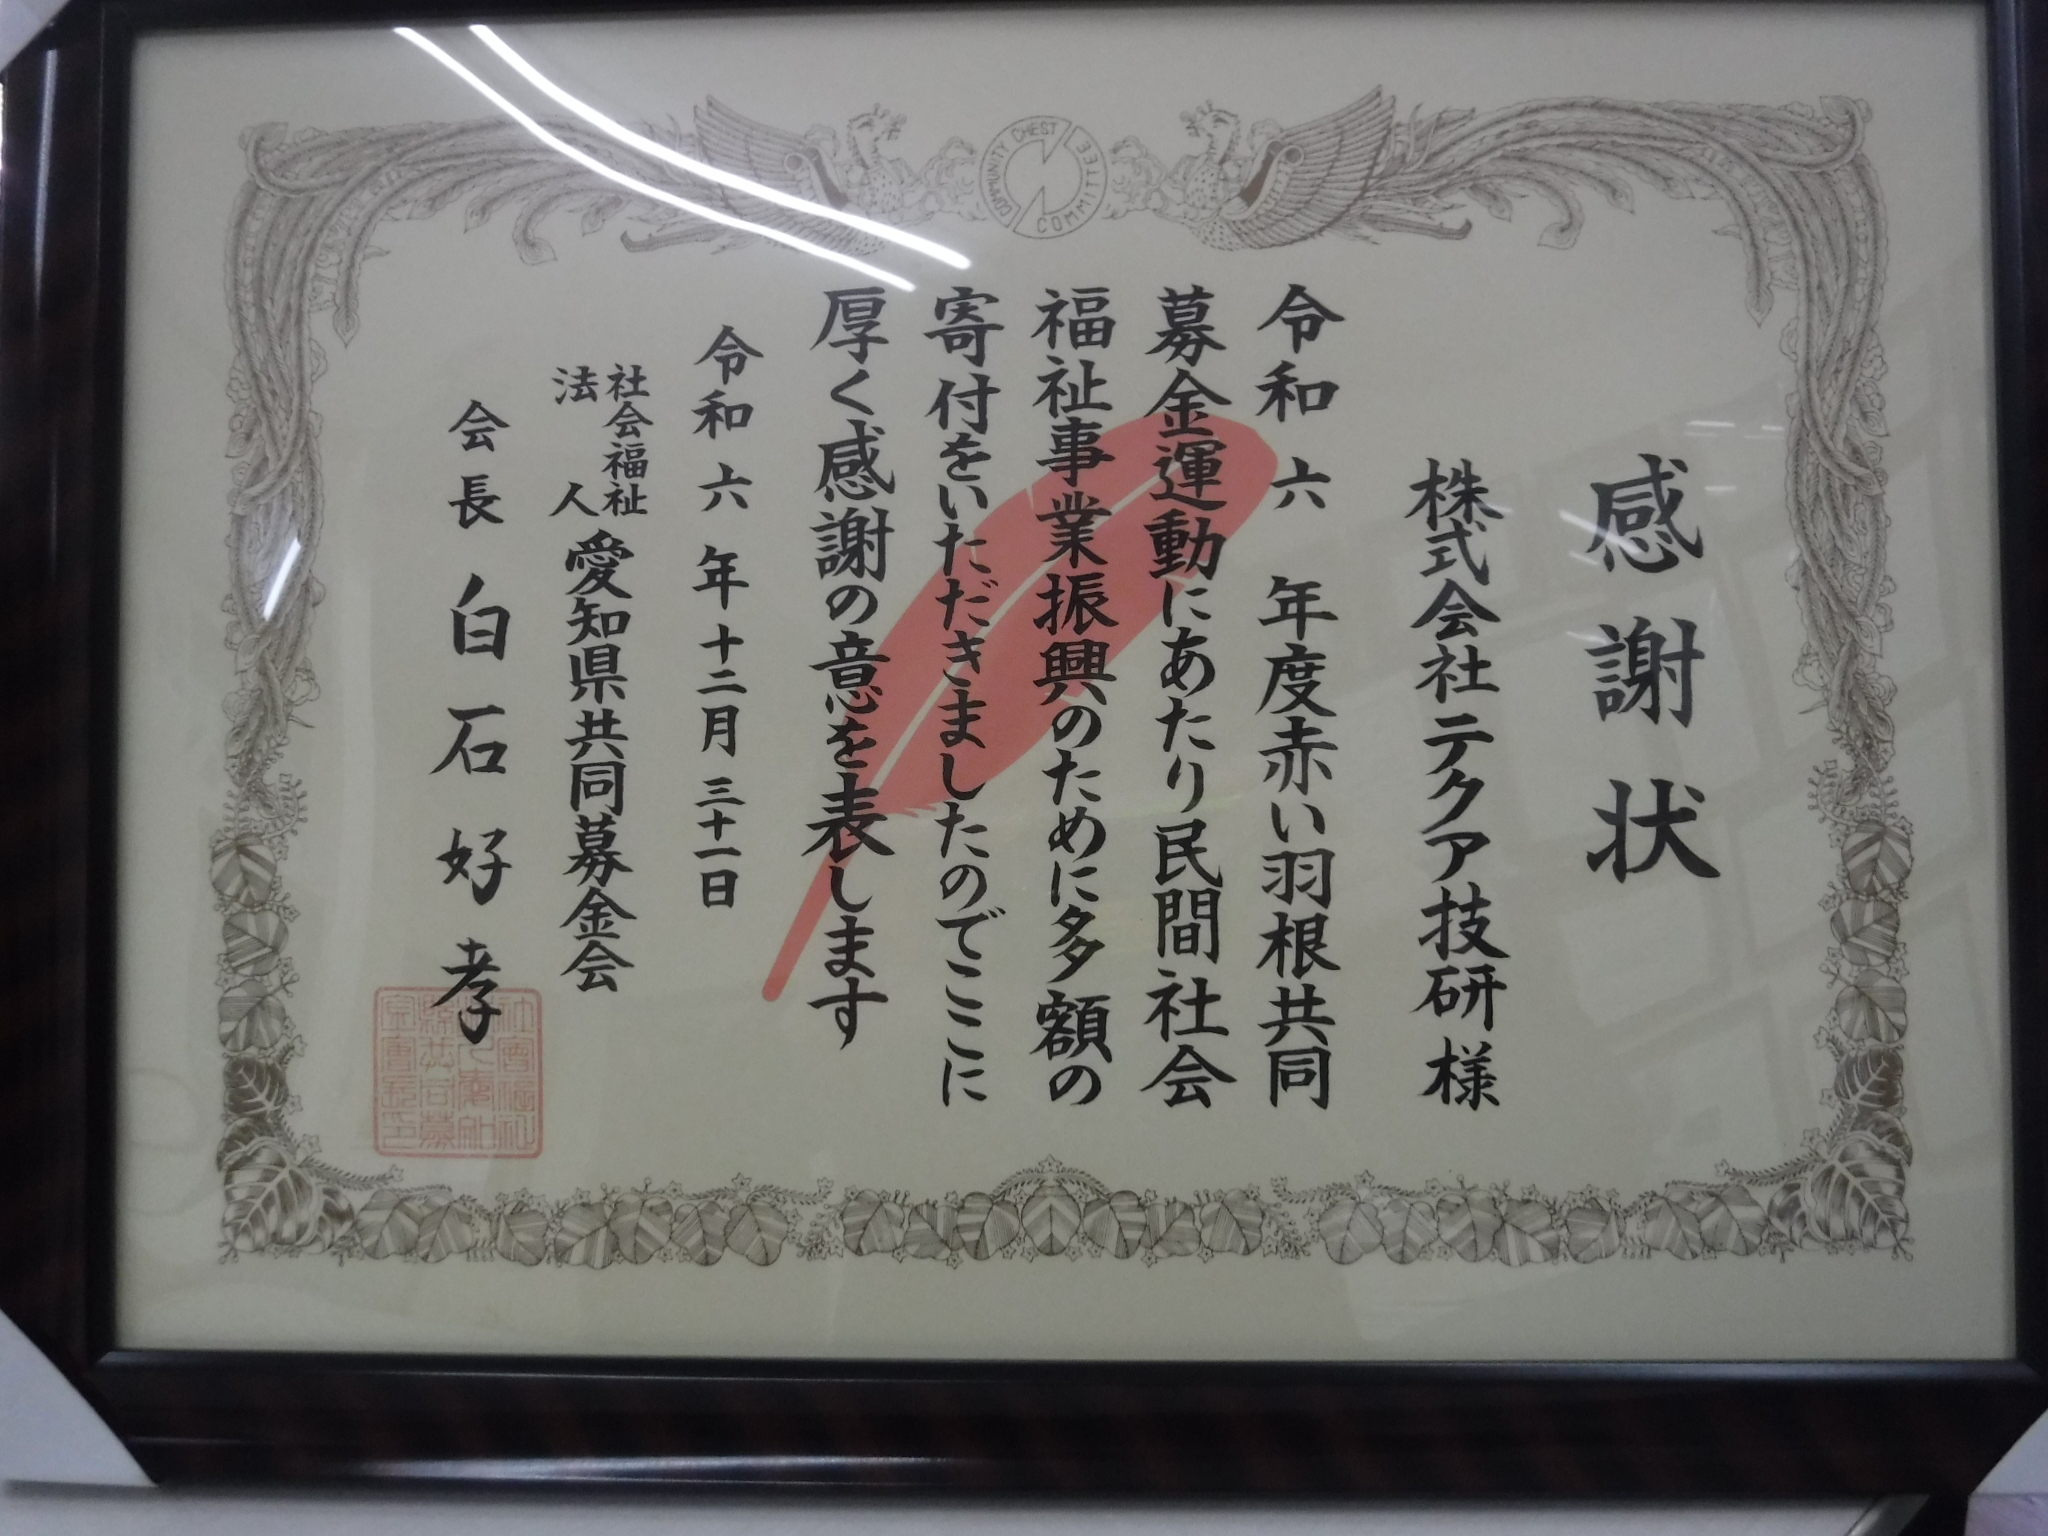 COMMUNITY CHEST COMMITTEE
感謝状
株式会社テクア技研様
令和六年度赤い羽根共同
募金運動にあたり民間社会
福祉事業振興のために多額の
寄付をいただきましたのでここに
厚く感謝の意を表します
令和六年十二月三十一日
社会福祉法人愛知県共同募金会
会長白石好孝